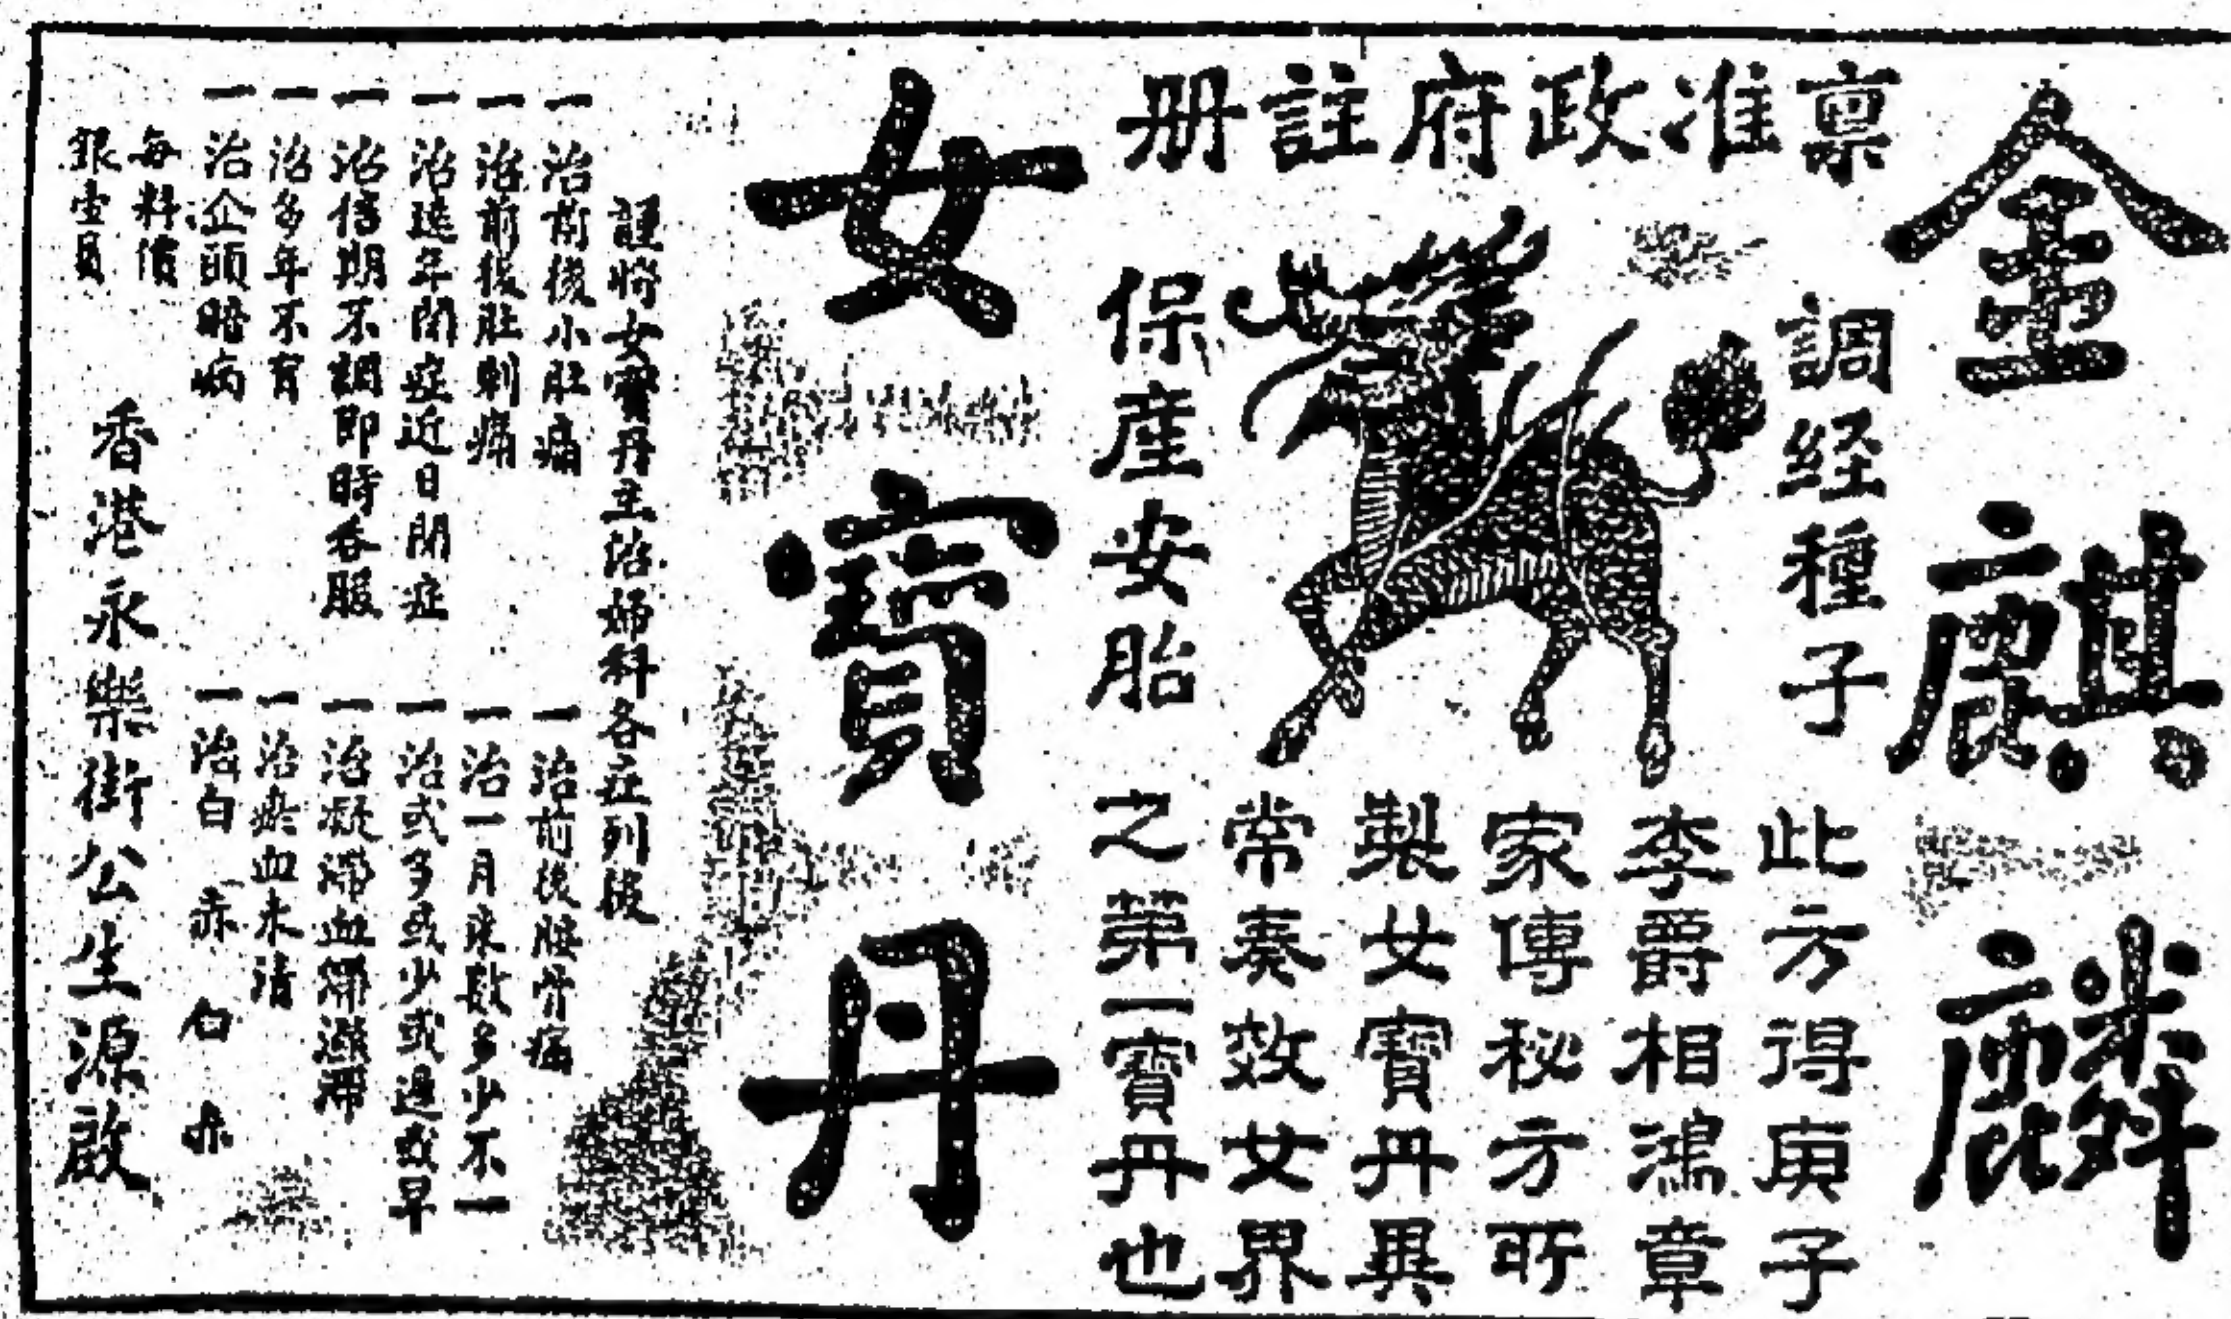 金麒麟
稟准政府註册
調経種子
保產安胎
此方得庚子
李爵相鴻章
家傳秘方所
製女寶丹異
常奏效女界
之第一寶丹也
女寶丹
謹將女寶丹主治婦科各症列後
一治前後小肚痛
一治前後肚刺痛
一治遠年閉症近日閉症
一治信期不調即時吞服
一治多年不育
一治企頭暗病
一治前後腰骨痛
一治一月來數多少不一
一治或多或少或過或早
一治凝滯血滯濕滯
一治瘀血未清
一治白 赤 白 赤
每料價
銀壹員
香港永樂街公生源啟